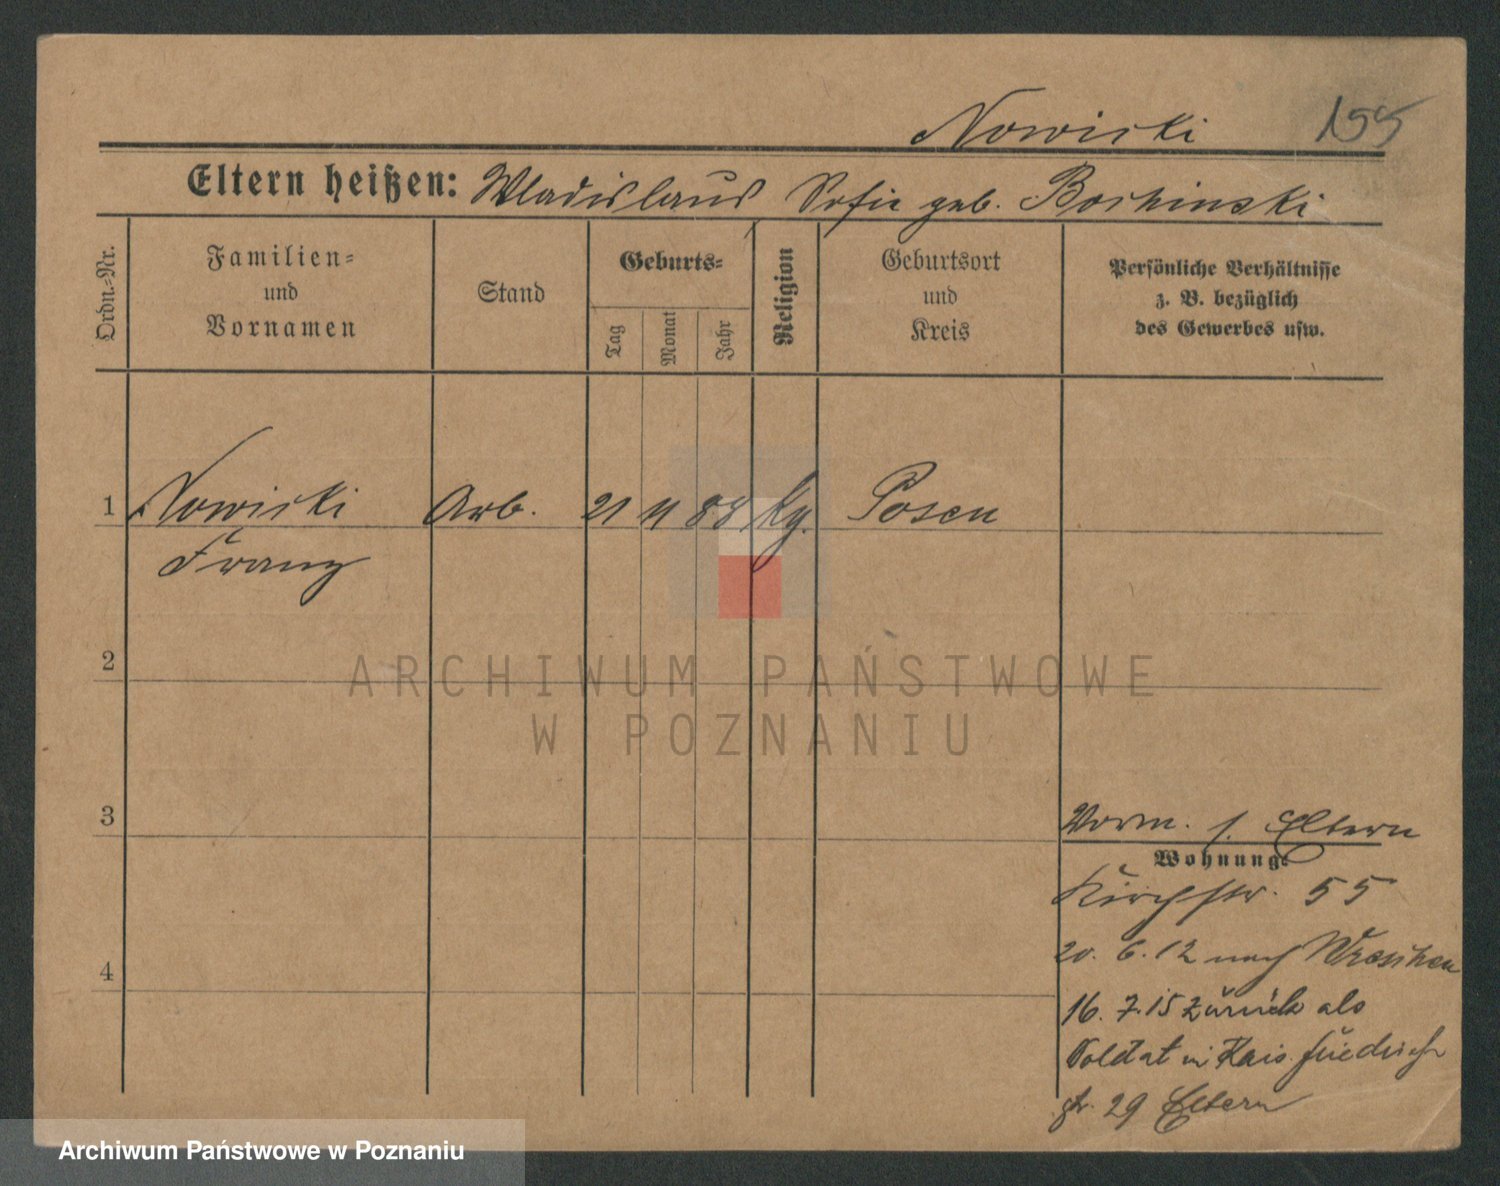 Nowicki 155
Eltern heißen: Wladislaus Sofie geb.
Ordn.-Nr.
Familien-
und
Vornamen
Stand
Geburts-
Tag
Monat
Jahr
Religion
Geburtsort
und
Kreis
Persönliche Verhältnisse
z. B. bezüglich
des Gewerbes usw.
1 Nowicki Arb. 21 11 88 kg. Posen
Franz
2
3
4
Vorm. s. Eltern
Wohnung:
Kirchstr. 55
20. 6. 12 nach Wreschen
16. 7. 15 zurück als
Soldat in Kais. Friedrich
str. 29 Eltern
ARCHIWUM PAŃSTWOWE
W POZNANIU
Archiwum Państwowe w Poznaniu